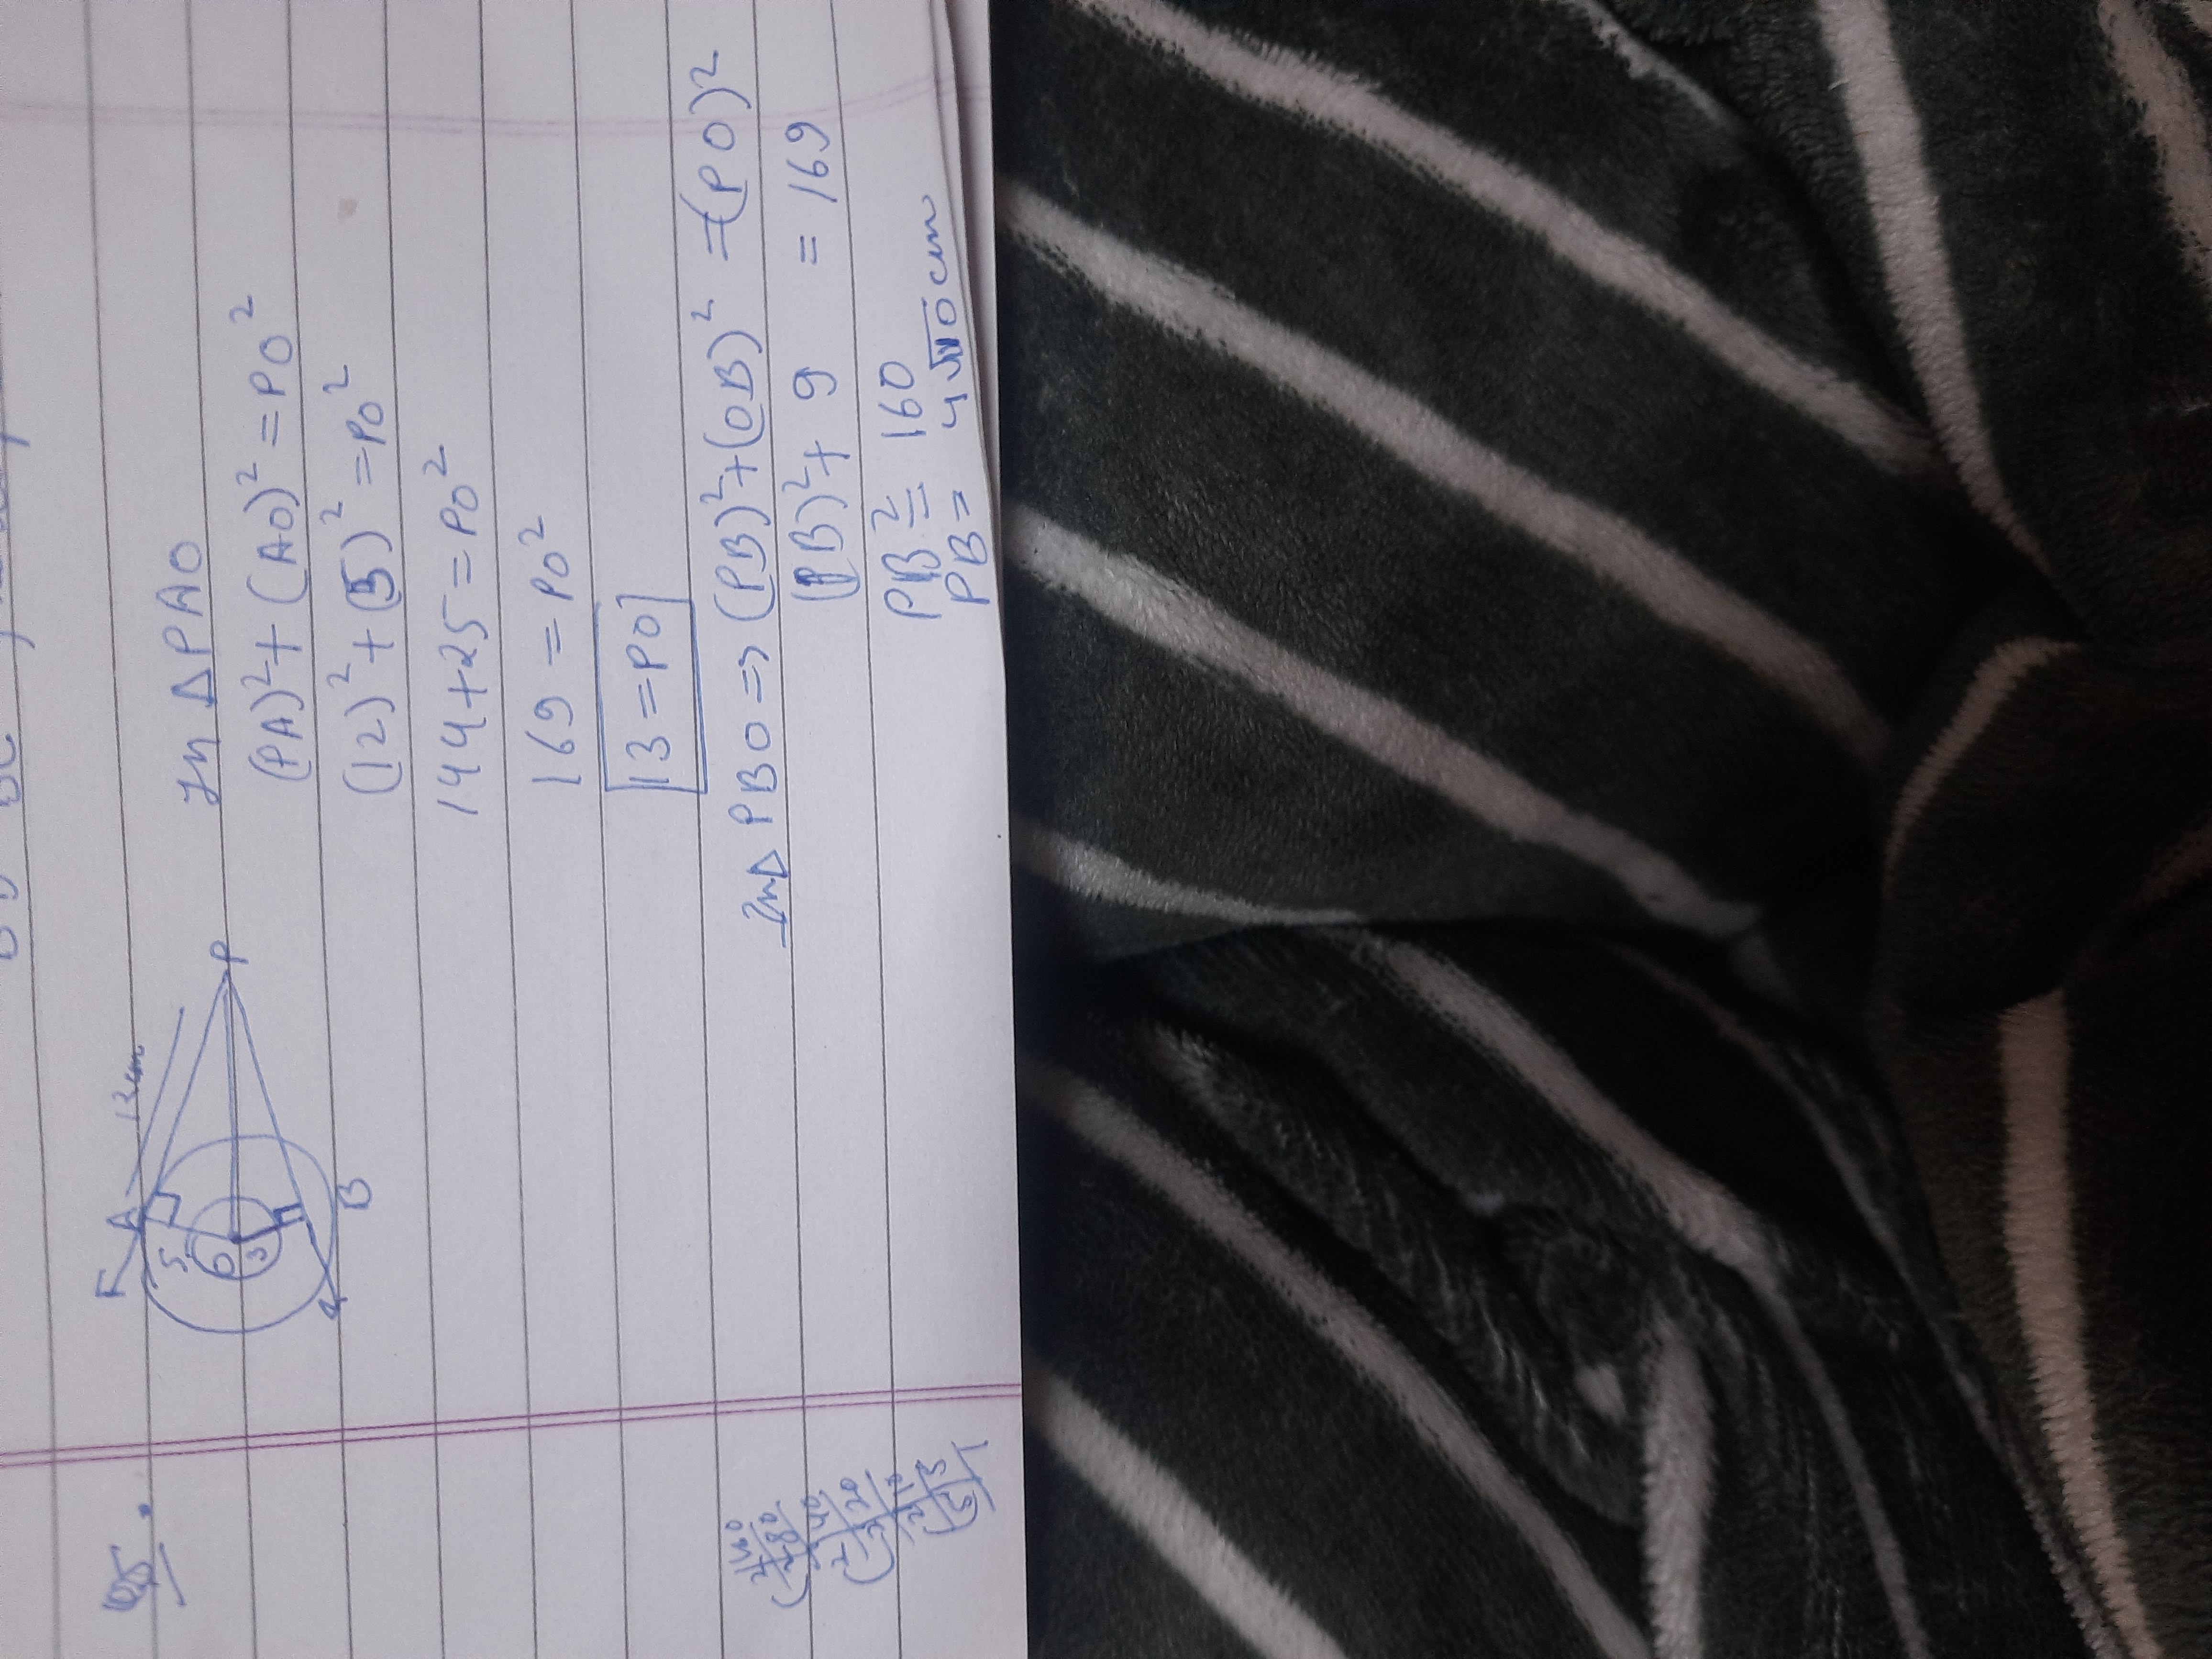 Q5.
F
A
12 cm
5
O
3
P
B
In △PAO
(PA)²+(AO)²=PO²
(12)²+(5)²=PO²
144+25=PO²
169=PO²
13=PO
In△ PBO=>(PB)²+(OB)²=(PO)²
(PB)²+9 = 169
PB² = 160
PB= 4√10 cm
2 160
2 80
2 40
2 20
2 10
5 5
1